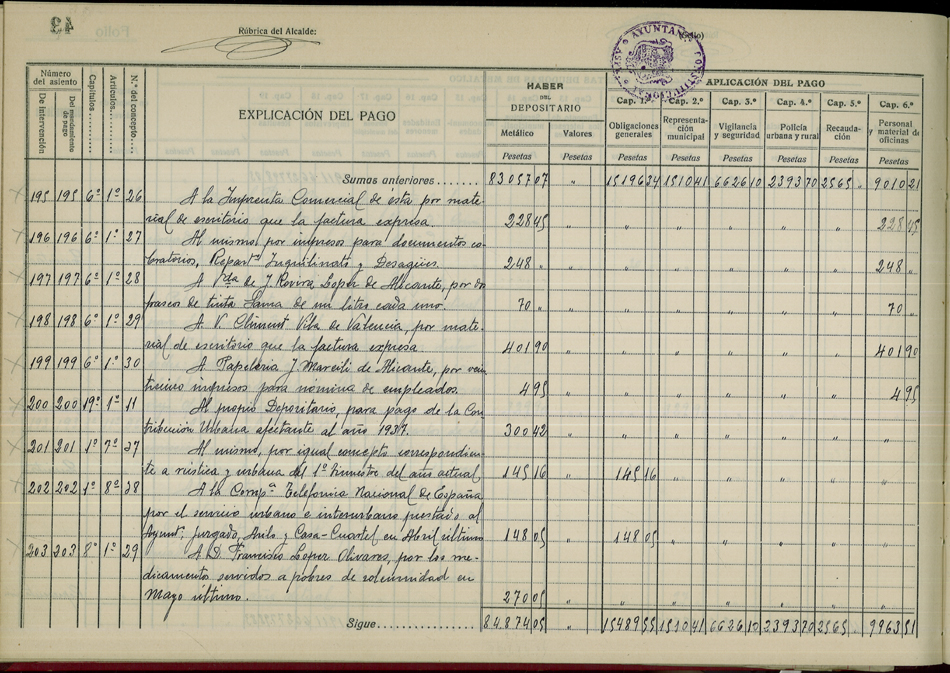 43
Folio
Rúbrica del Alcalde:
(Sello)
AYUNTAMIENTO CONSTITUCIONAL
Número del asiento
De intervención
Del mandamiento de pago
Capítulos
Artículos
N.º del concepto
EXPLICACIÓN DEL PAGO
HABER DEL DEPOSITARIO
Metálico
Valores
APLICACIÓN DEL PAGO
Cap. 1.º Cap. 2.º Cap. 3.º Cap. 4.º Cap. 5.º Cap. 6.º
Obligaciones generales
Representación municipal
Vigilancia y seguridad
Policía urbana y rural
Recaudación
Personal y material de oficinas
Pesetas Pesetas Pesetas Pesetas Pesetas Pesetas Pesetas Pesetas
Sumas anteriores....... 83057 07 " 15196 34 1510 41 6626 10 2393 70 2565 " 9010 21
195 195 6º 1º 26 A la Imprenta Comercial de esta por mate-
rial de escritorio que la factura expresa. 228 45 " " " " " " 228 45
196 196 6º 1º 27 Al mismo, por impresos para documentos co-
bratorios, Repartº Inquilinato y Desagües. 248 " " " " " " " 248 "
197 197 6º 1º 28 A Vda de J. Rovira Lopez de Alicante, por dos
frascos de tinta Sama de un litro cada uno. 70 " " " " " " " 70 "
198 198 6º 1º 29 A V. Climent Vila de Valencia, por mate-
rial de escritorio que la factura expresa. 401 90 " " " " " " 401 90
199 199 6º 1º 30 A Papeleria J. Marcili de Alicante, por vein
ticinco impresos para nómina de empleados. 4 95 " " " " " " 4 95
200 200 19º 1º 11 Al propio Depositario, para pago de la Con
tribución Urbana afectante al año 1937. 300 42 " " " " " " "
201 201 1º 7º 27 Al mismo, por igual concepto correspondien-
te a rústica y urbana del 1º trimestre del año actual 145 16 " 145 16 " " " " "
202 202 1º 8º 28 A la Compª Telefónica Nacional de España
por el servicio urbano e interurbano prestado al
Ayuntº, juzgado, Asilo y Casa-Cuartel en Abril último 148 05 " 148 05 " " " " "
203 203 8º 1º 29 A D. Francisco Lopez Olivares, por los me-
dicamentos servidos a pobres de solemnidad en
Mayo último. 270 05 " " " " " " "
Sigue........ 84.874 05 " 15489 55 1510 41 6626 10 2393 70 2565 " 9963 51